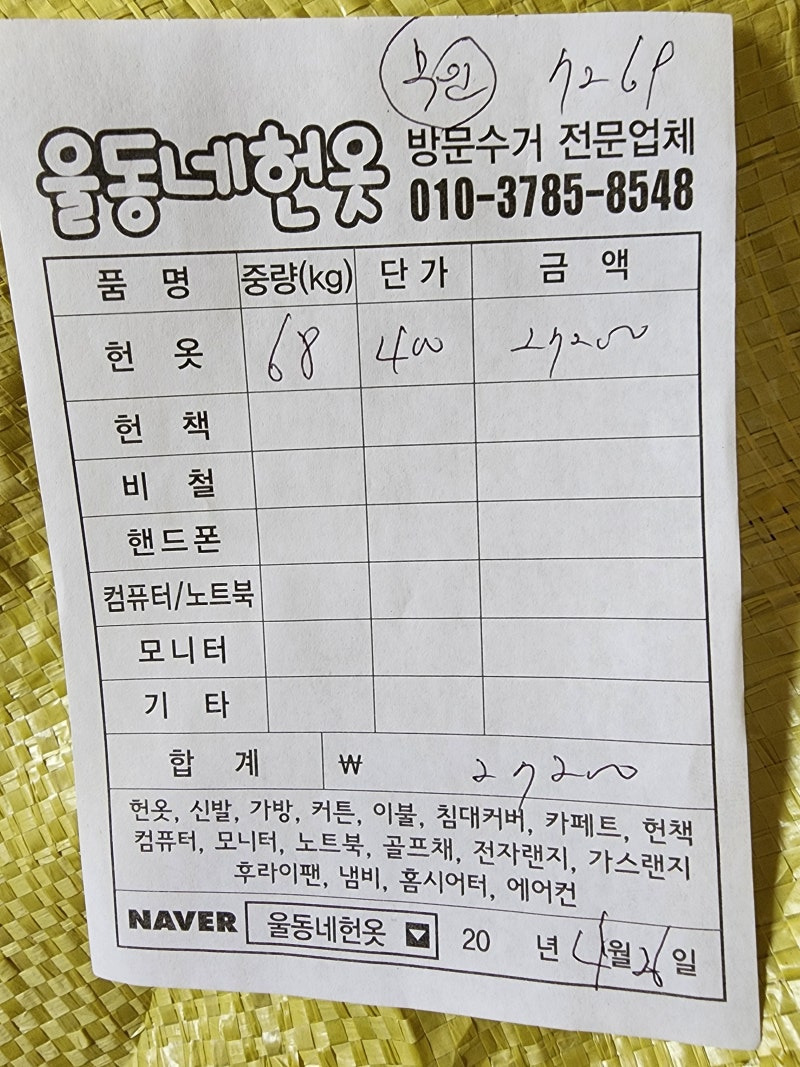 7269
울동네헌옷 방문수거 전문업체
010-3785-8548
품 명 중량(kg) 단 가 금 액
헌 옷 68 400 27200
헌 책
비 철
핸드폰
컴퓨터/노트북
모니터
기 타
합 계 ₩ 27200
헌옷, 신발, 가방, 커튼, 이불, 침대커버, 카페트, 헌책
컴퓨터, 모니터, 노트북, 골프채, 전자랜지, 가스랜지
후라이팬, 냄비, 홈시어터, 에어컨
NAVER 울동네헌옷 20 년 4월 26일